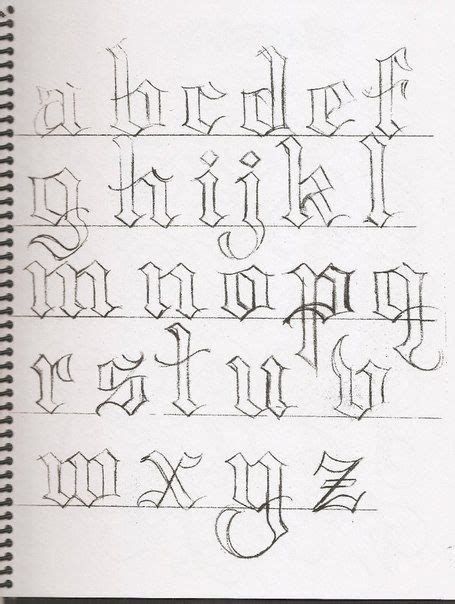 a b c d e f
g h i j k l
m n o p q
r s t u v
w x y z